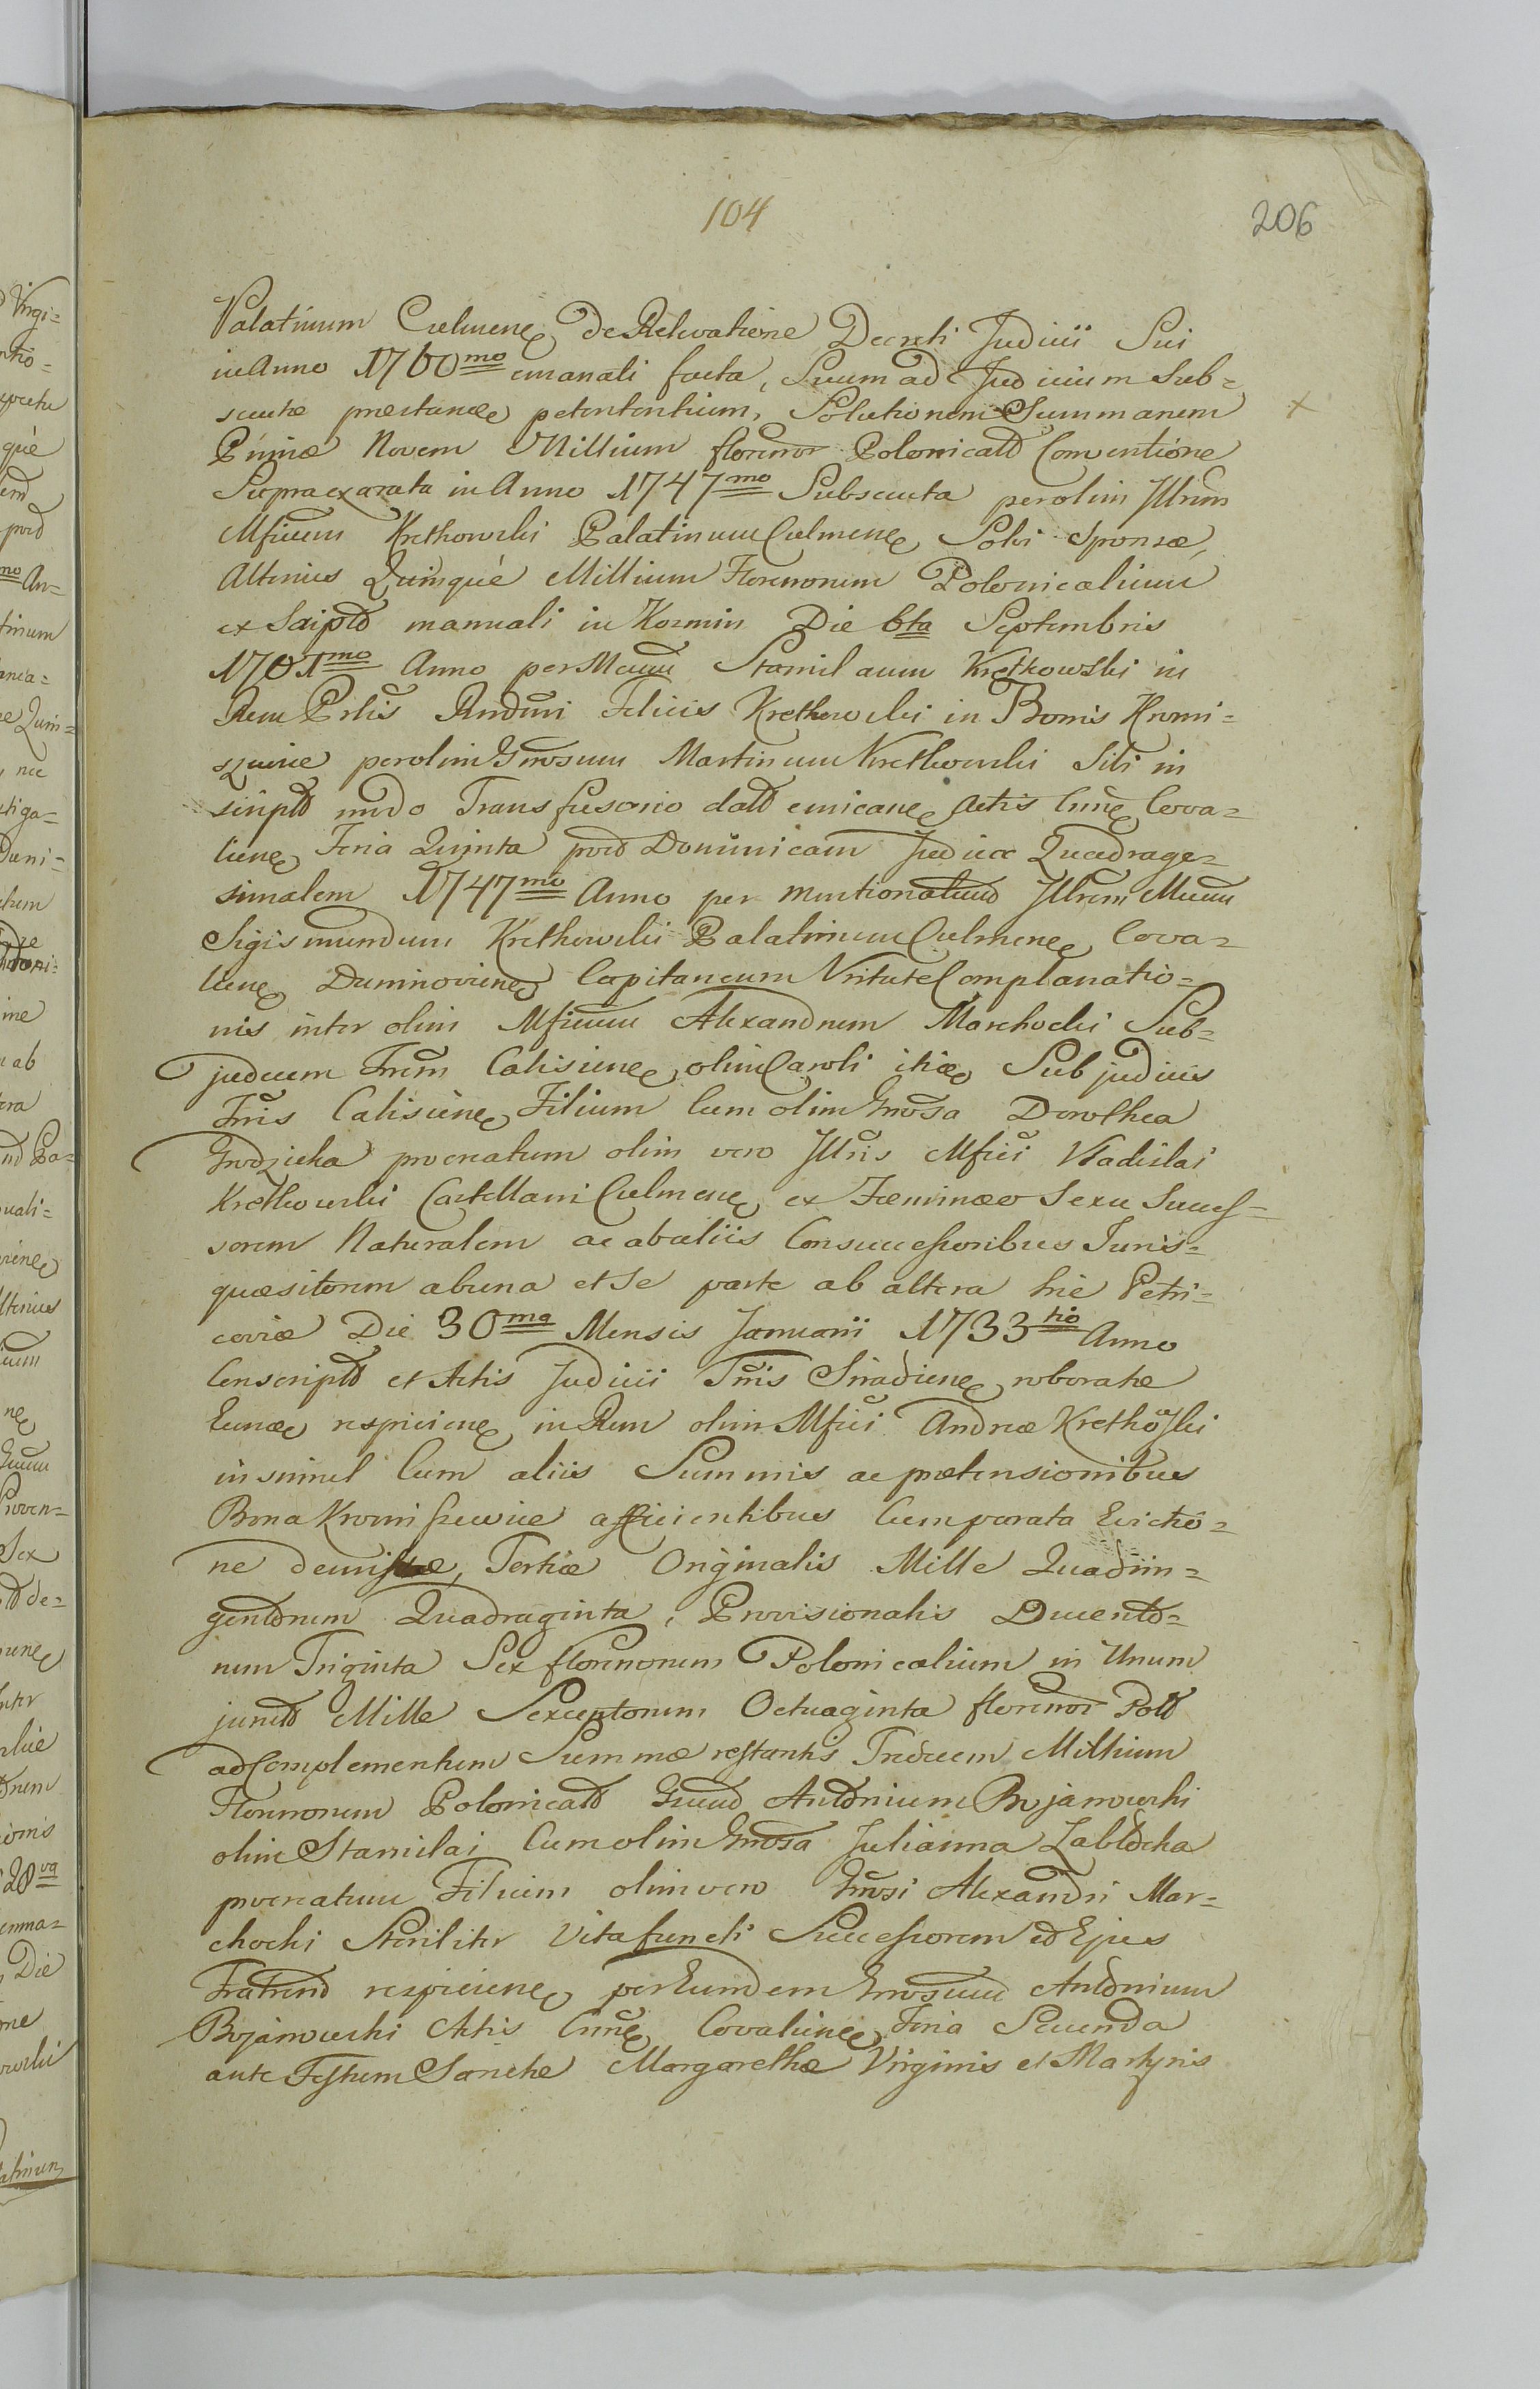 104
206
Palatinum Culmen de Relevatione Decreti Judicii Sui
in Anno 1760mo emanati facta, Suum ad Judicium Sub=
secutae praestan petententium, Solutionem Summarum
Primae Novem Millium florenor Polonicald Conventione
Supraexarata in Anno 1747mo Subsecuta per olim Illrem
Mficum Krethowski Palatinum Culmen Sibi Sponsae,
Alterius Quinque Millium Florenorum Polonicalium
ex Scriptd manuali in Kozmin Die 6ta Septembris
1701mo Anno per Mcum Stanislaum Kretkowski in
Rem Prlis Rndmi Felicis Krethowski in Bonis Kromi=
szewice per olim Grosum Martinum Krethowski Sibi in
scriptd mdo Transfusorio datd emican Actis Cun Cova=
lien Feria Quinta post Dominicam Judica Quadrage=
simalem 1747mo Anno per mentionatum Illrem Mcum
Sigismundum Krethowski Palatinum Culmen, Cova=
lien Duninovien Capitaneum Virtute Complanatio=
nis inter olim Mficum Alexandrum Marchocki Sub=
judicem Trem Calisien, olim Caroli itid Subjudicis
Tris Calisien Filium Cum olim Grosa Dorothea
Grodzicka procreatum olim vero Illris Mfici Vladislai
Krethowski Castellani Culmen ex Faemineo Sexu Succes=
sorem Naturalem ac ab aliis Consuccessoribus Juris=
quaesitorem ab una et Se parte ab altera hic Petri=
coviae Die 30ma Mensis Januarii 1733tio Anno
Conscriptd et Actis Judicii Tris Siradien roboratae
Eund respicien in Rem olim Mfici Andreae Krethowski
in simul Cum aliis Summis ac praetensionibus
Bona Kromiszewice afficientibus Cum parata Evictio=
ne demissae, Tertiae Originalis Mille Quadrin=
gentorum Quadraginta, Provisionalis Ducento=
rum Triginta Sex florenorum Polonicalium in Unum
junctd Mille Sexcentorum Octuaginta florenor Pold
ad Complementum Summae restantis Tredecim Millium
Florenorum Polonicald Grum Antonium Bojanowski
olim Stanislai Cum olim Grosa Julianna Zablocka
procreatum Filium olim vero Grosi Alexandri Mar=
chocki Steriliter Vita functi Successorem et Ejus
Fratrem respicien per Eundem Grosum Antonium
Bojanowski Actis Cun Covalien Feria Secunda
ante Festum Sanctae Margarethae Virginis et Martyris